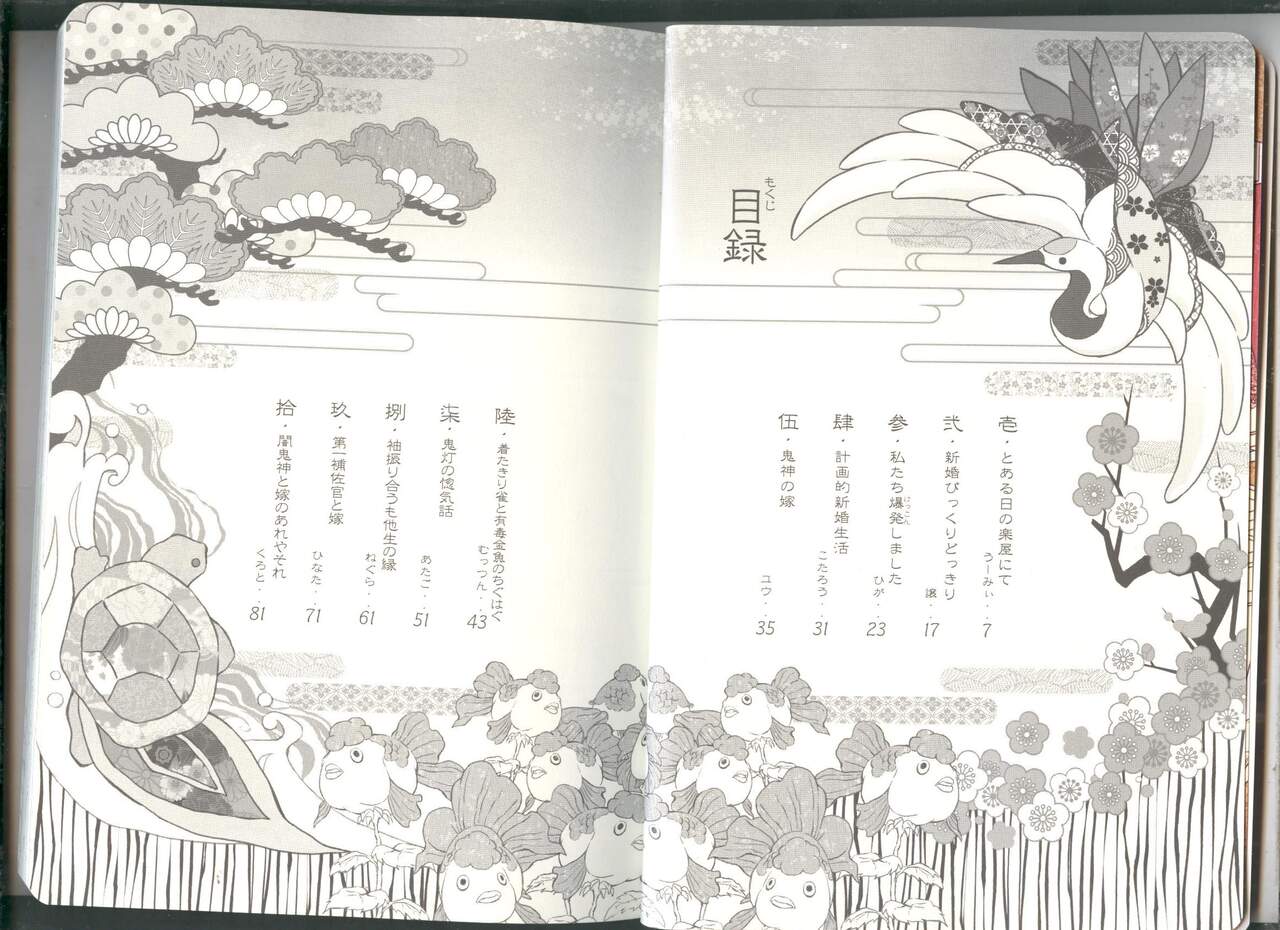 もくじ
目録
壱・とある日の楽屋にて うーみぃ・・7
弐・新婚びっくりどっきり 譲・・17
参・私たち爆発しました ひが・・23
ばっこん
肆・計画的新婚生活 こたろう・・31
伍・鬼神の嫁 ユウ・・35
陸・着たきり雀と有毒金魚のちぐはぐ むっつん・・43
柒・鬼灯の惚気話 あたご・・51
捌・袖振り合うも他生の縁 ねぐら・・61
玖・第一補佐官と嫁 ひなた・・71
拾・闇鬼神と嫁のあれやそれ くろと・・81